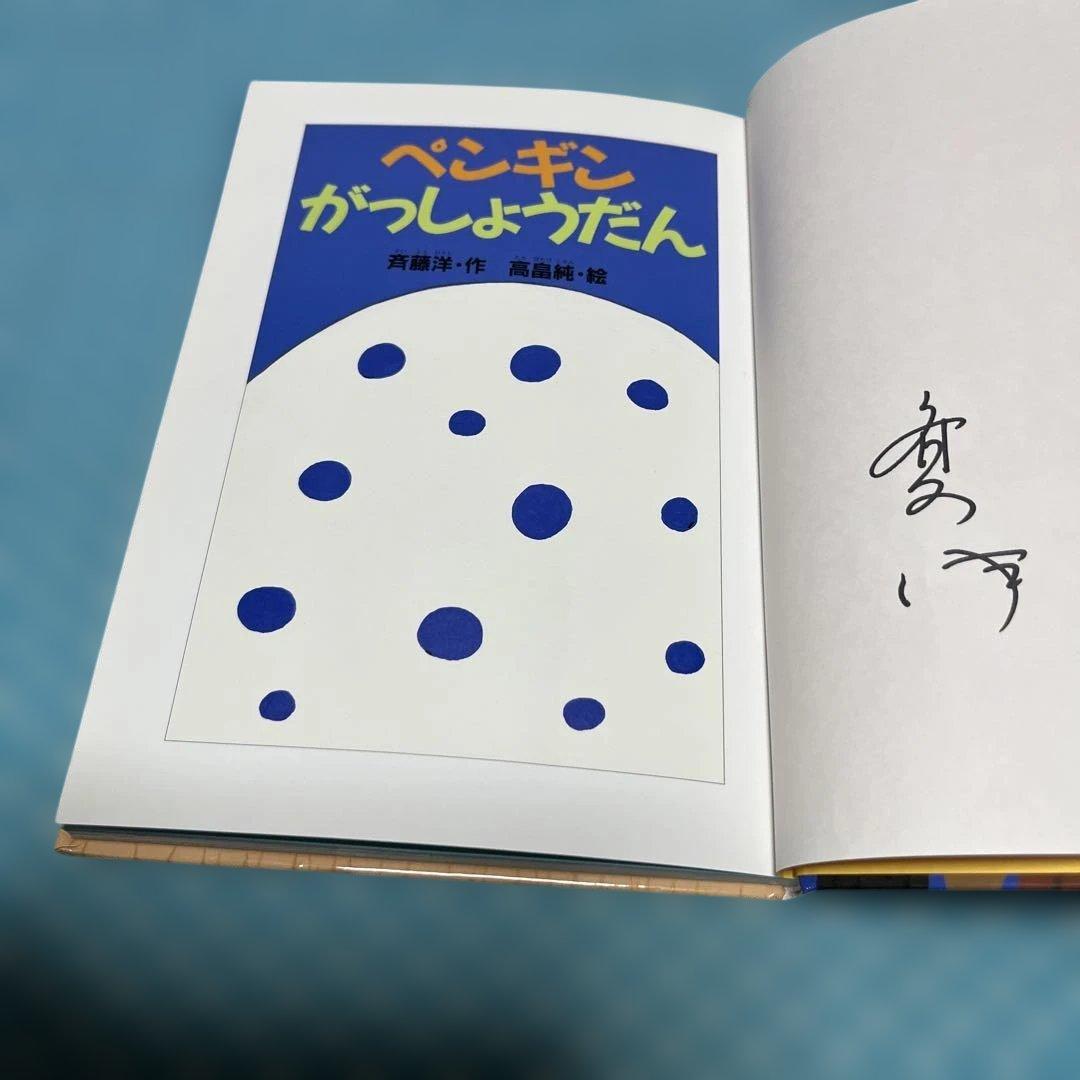 ペンギン
がっしょうだん
斉藤洋・作　高畠純・絵